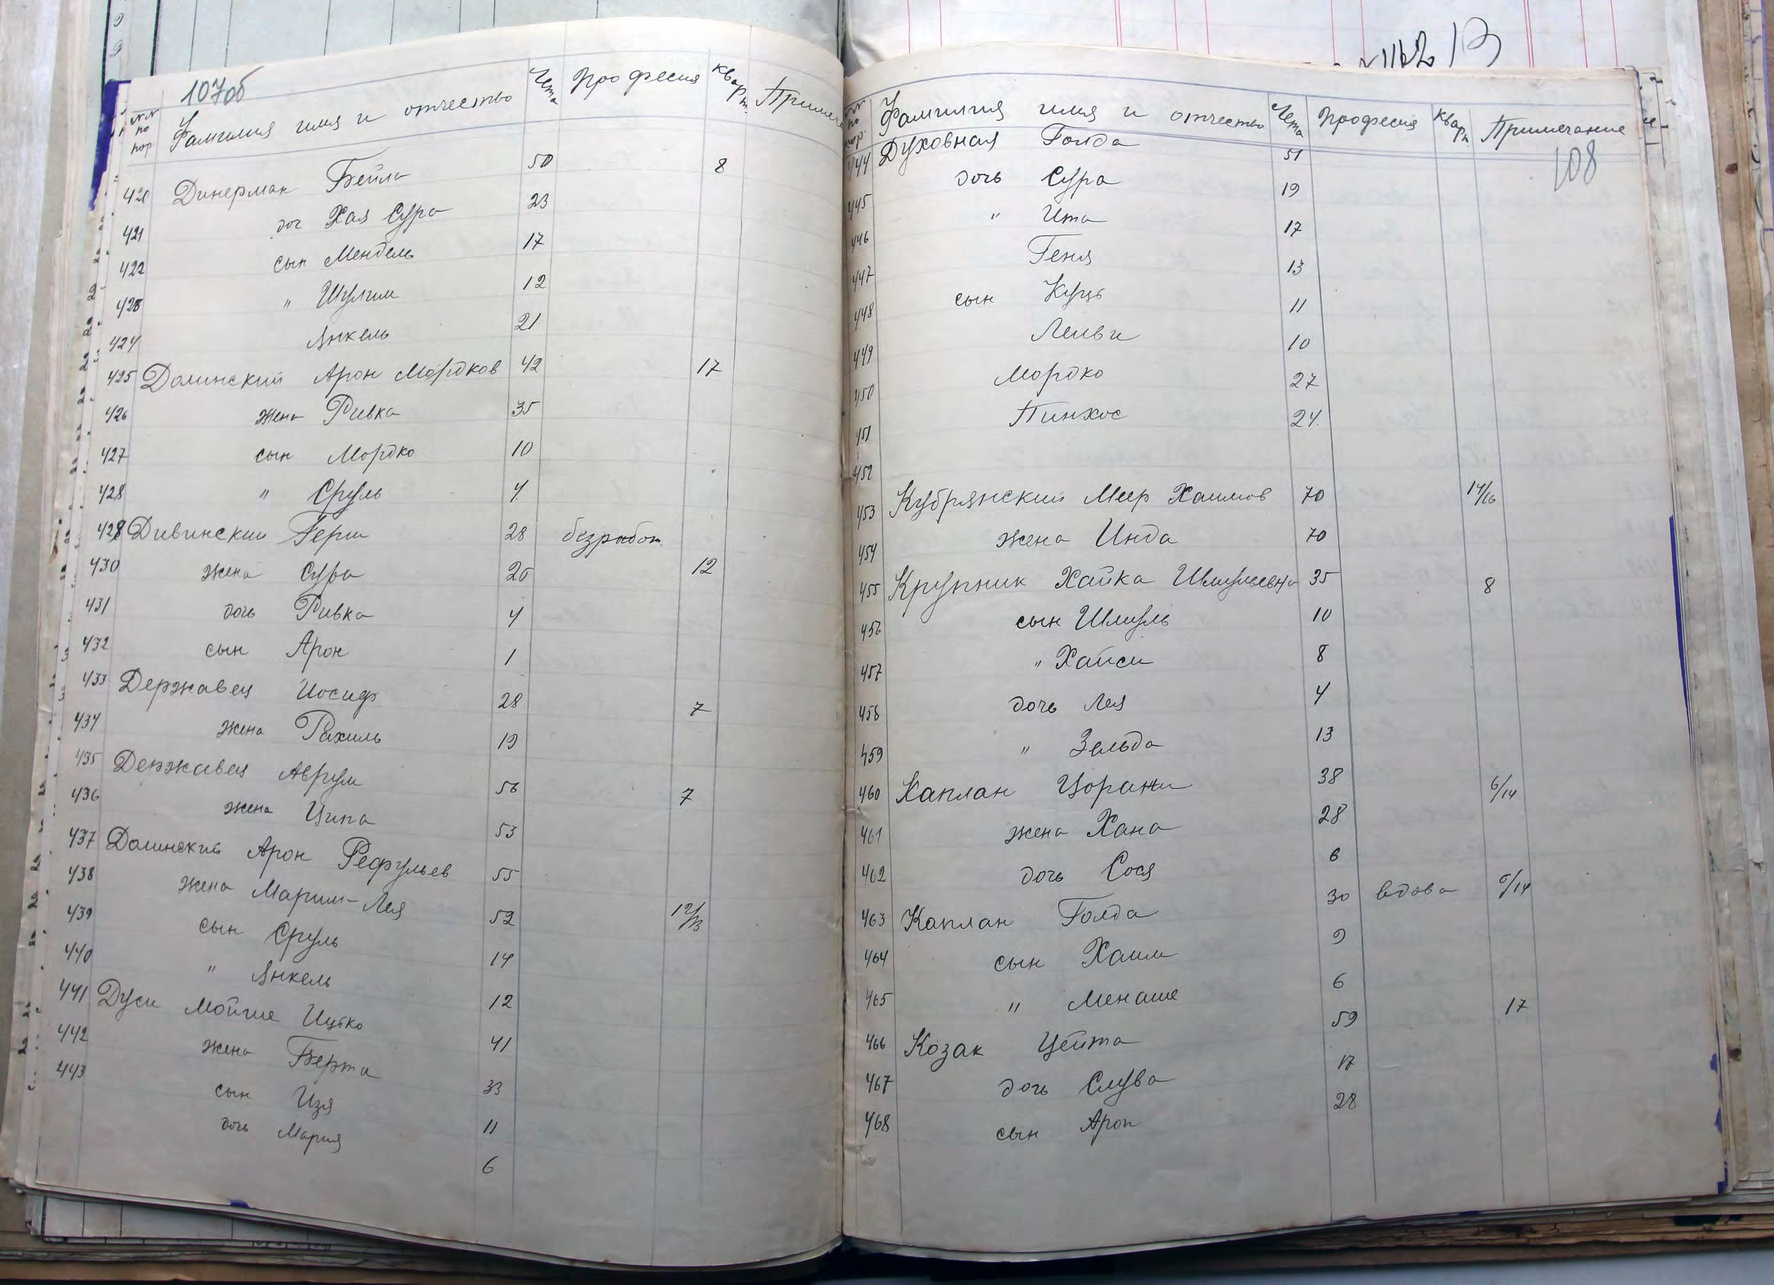 107об
№№ по пор Фамилия имя и отчество Лета Професия Кварт. Примеч
420 Динерман Бейла 50 8
421 доч Хая Сура 23
422 сын Мендель 17
423 " Шулим 12
424 Янкель 21
425 Долинский Арон Мордков 42 17
426 жена Ривка 35
427 сын Мордко 10
428 " Сруль 4
429 Дивинский Герш 28 безработ.
430 жена Сура 26 12
431 дочь Ривка 4
432 сын Арон 1
433 Державец Иосиф 28 7
434 жена Рахиль 19
435 Державец Аврум 56 7
436 жена Ципа 53
437 Долинский Арон Рефульев 55
438 жена Марим-Лея 52 12/13
439 сын Сруль 14
440 " Янкель 12
441 Дуси Мойше Ицько 41
442 жена Берта 33
443 сын Изя 11
дочь Мария 6
1162 13
№№ по пор Фамилия имя и отчество Лета Професия Кварт Примечание
108
444 Духовная Голда 51
445 дочь Сура 19
446 " Ита 17
447 Геня 13
448 сын Куць 11
449 Лейви 10
450 Мордко 27
451 Пинхос 24
452
453 Кубрянский Меер Хаимов 70 14/16
454 жена Инда 70
455 Крупник Хайка Шмулевна 35 8
456 сын Шмуль 10
457 " Хайси 8
458 дочь Лея 4
459 " Зельда 13
460 Каплан 38 6/14
461 жена Хана 28
462 дочь Сося 6
463 Каплан Голда 30 вдова 6/14
464 сын Хаим 9
465 " Менаше 6
466 Козак Цейта 59 17
467 дочь Слува 17
468 сын Арон 28